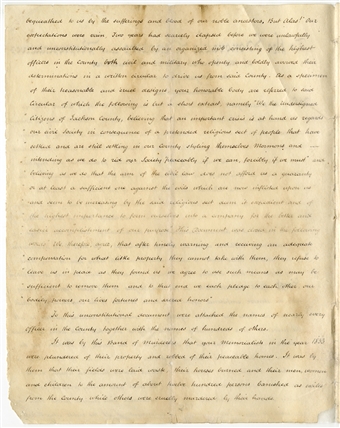 bequeathed to us by the sufferings and blood of our noble ancestors, But Alas! Our
expectations were vain. Two years had scarcely elapsed before we were unlawfully
and unconstitutionally assaulted by an organized mob consisting of the highest
officers in the County both civil and military who openly and boldly avowed their
determinations in a written circular to drive us from said County. As a specimen
of their treasonable and cruel designs your honorable body are referred to said
Circular of which the following is but a short extract, namely "We the undersigned
Citizens of Jackson County, believing that an important crisis is at hand as regards
our civil Society in consequence of a pretended religious sect of people that have
settled and are still settling in our County styling themselves Mormons and
intending as we do to rid our Society peaceably if we can, forcibly if we must and
believing as we do that the arm of the civil law does not afford us a guaranty
or at least a sufficient one against the evils which are now inflicted upon us
and seem to be increasing by the said religious sect deem it expedient and of
the highest importance to form ourselves into a company for the better and
easier accomplishment of our purpose. This document was closed in the following
words. We therefore agree, that after timely warning and receiving an adequate
compensation for what little property they cannot take with them, they refuse to
leave us in peace as they found us we agree to use such means as may be
sufficient to remove them and to this end we each pledge to each other our
bodily powers, our lives fortunes and sacred honors"
To this unconstitutional document were attached the names of nearly every
Officer in the County together with the names of hundreds of others.
It was by this Band of Murderers that your Memorialists in the year 1833
were plundered of their property and robbed of their peaceable homes. It was by
them that their fields were laid waste, their houses burned and their men, women
and children to the amount of about twelve hundred persons banished as exiles
from the County while others were cruelly murdered by their hands.